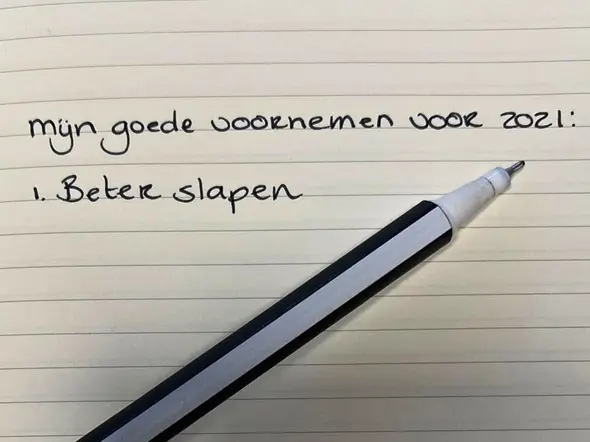 mijn goede voornemen voor 2021:
1. Beter slapen